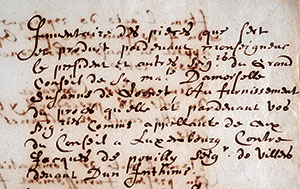 Inventaire des pieces que sert
et produit pardevant monseigneur
le president et autres seigrs du Grand
Conseil de sa mate Damoiselle
de Au furnissement
du proces quelle at pardevant vos
Seigries comme appellante de ceux
du Conseil a Luxembourg Contre
Jacques de pouilly Seigr de Villers
devant Dun Inthimé